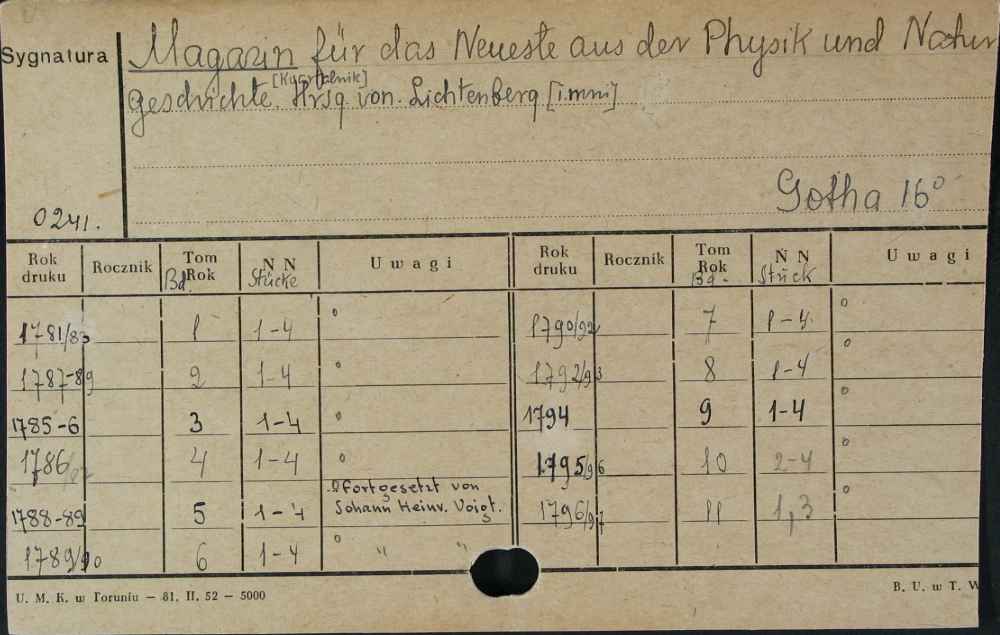 Sygnatura
Magazin für das Neueste aus der Physik und Natur
[Kwartalnik]
geschichte. Hrsg. von. Lichtenberg [i.inni]
Gotha 16°
0241.
Rok druku Rocznik Tom Rok N N Uwagi Rok druku Rocznik Tom Rok N N Uwagi
Bd. Stücke Bd. Stück
1781/83 1 1-4 ° 1790/92 7 1-4 °
1787-89 2 1-4 ° 1792/93 8 1-4 °
1785-6 3 1-4 ° 1794 9 1-4 °
1786/87 4 1-4 ° 1795/96 10 2-4 °
1788-89 5 1-4 fortgesetzt von Johann Heinr. Voigt. 1796/97 11 1,3 °
1789/90 6 1-4 ° " "
U. M. K. w Toruniu — 81. II. 52 — 5000
B. U. w T. W